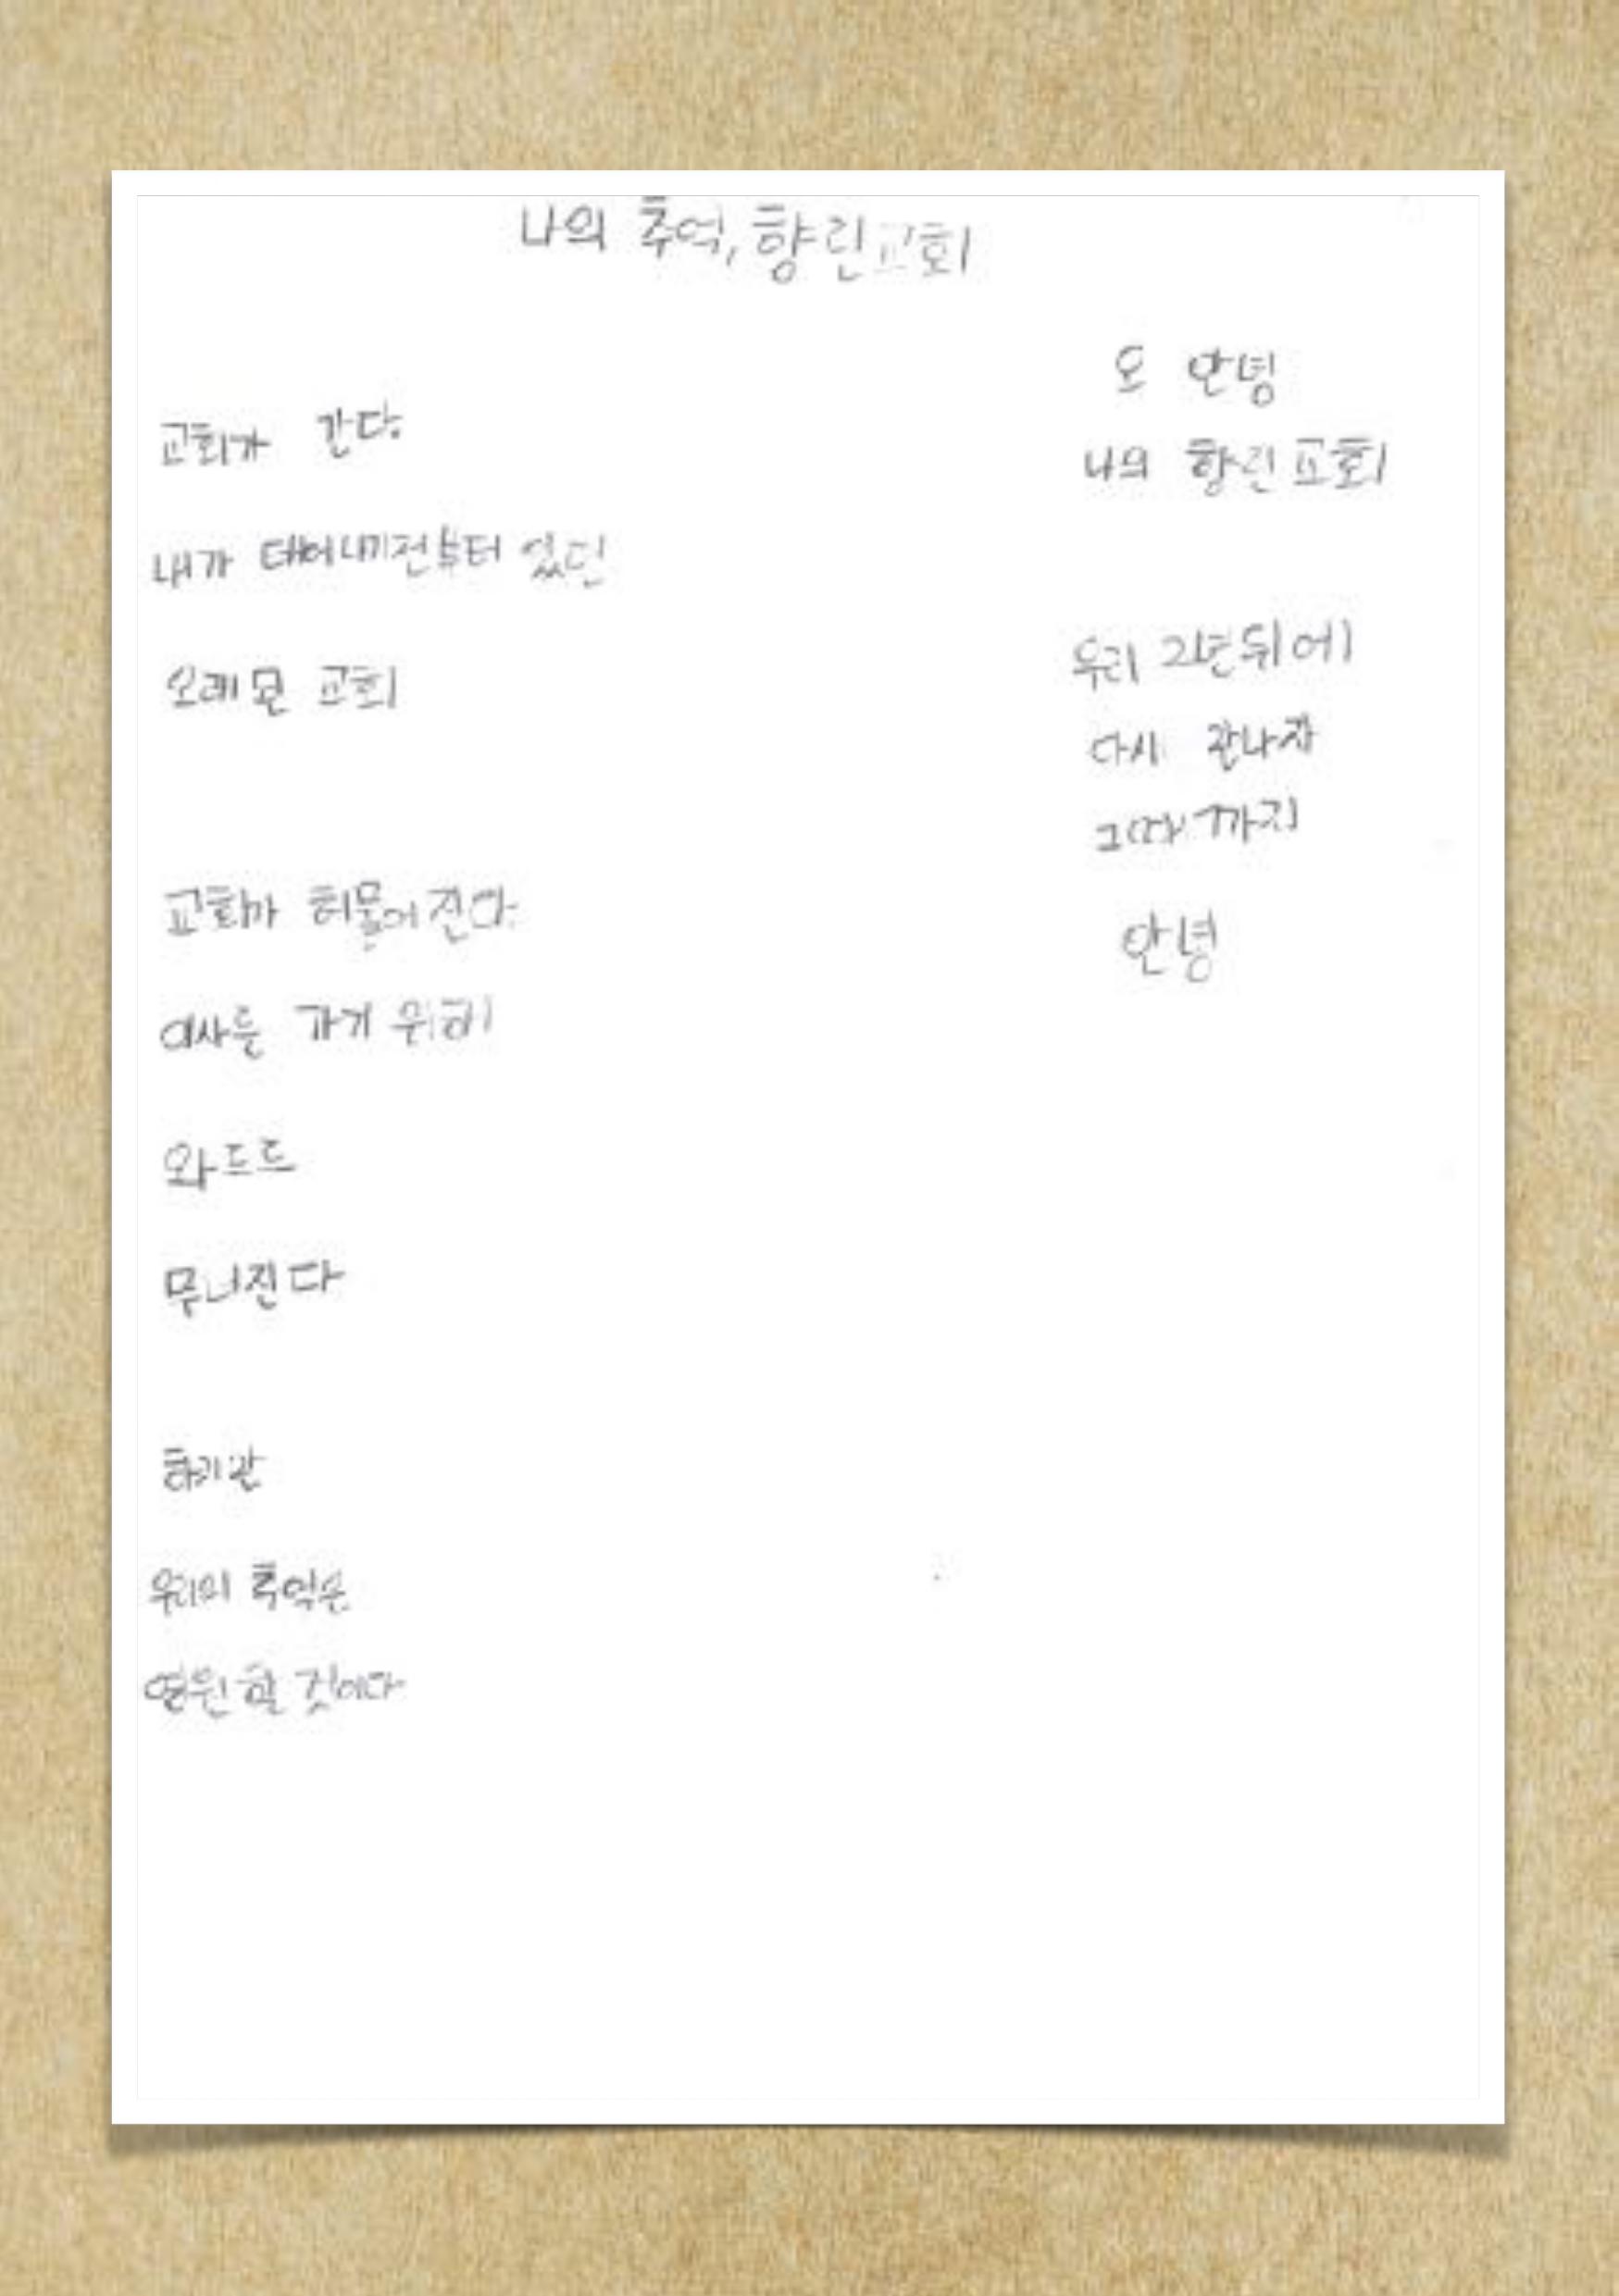 나의 추억, 향린교회
교회가 간다.
내가 태어나기전부터 있던
오래된 교회
교회가 허물어진다.
이사를 가기 위해
와드드
무너진다
하지만
우리의 추억은
영원할 것이다
오 안녕
나의 향린교회
우리 2년뒤에
다시 만나자
그때까지
안녕